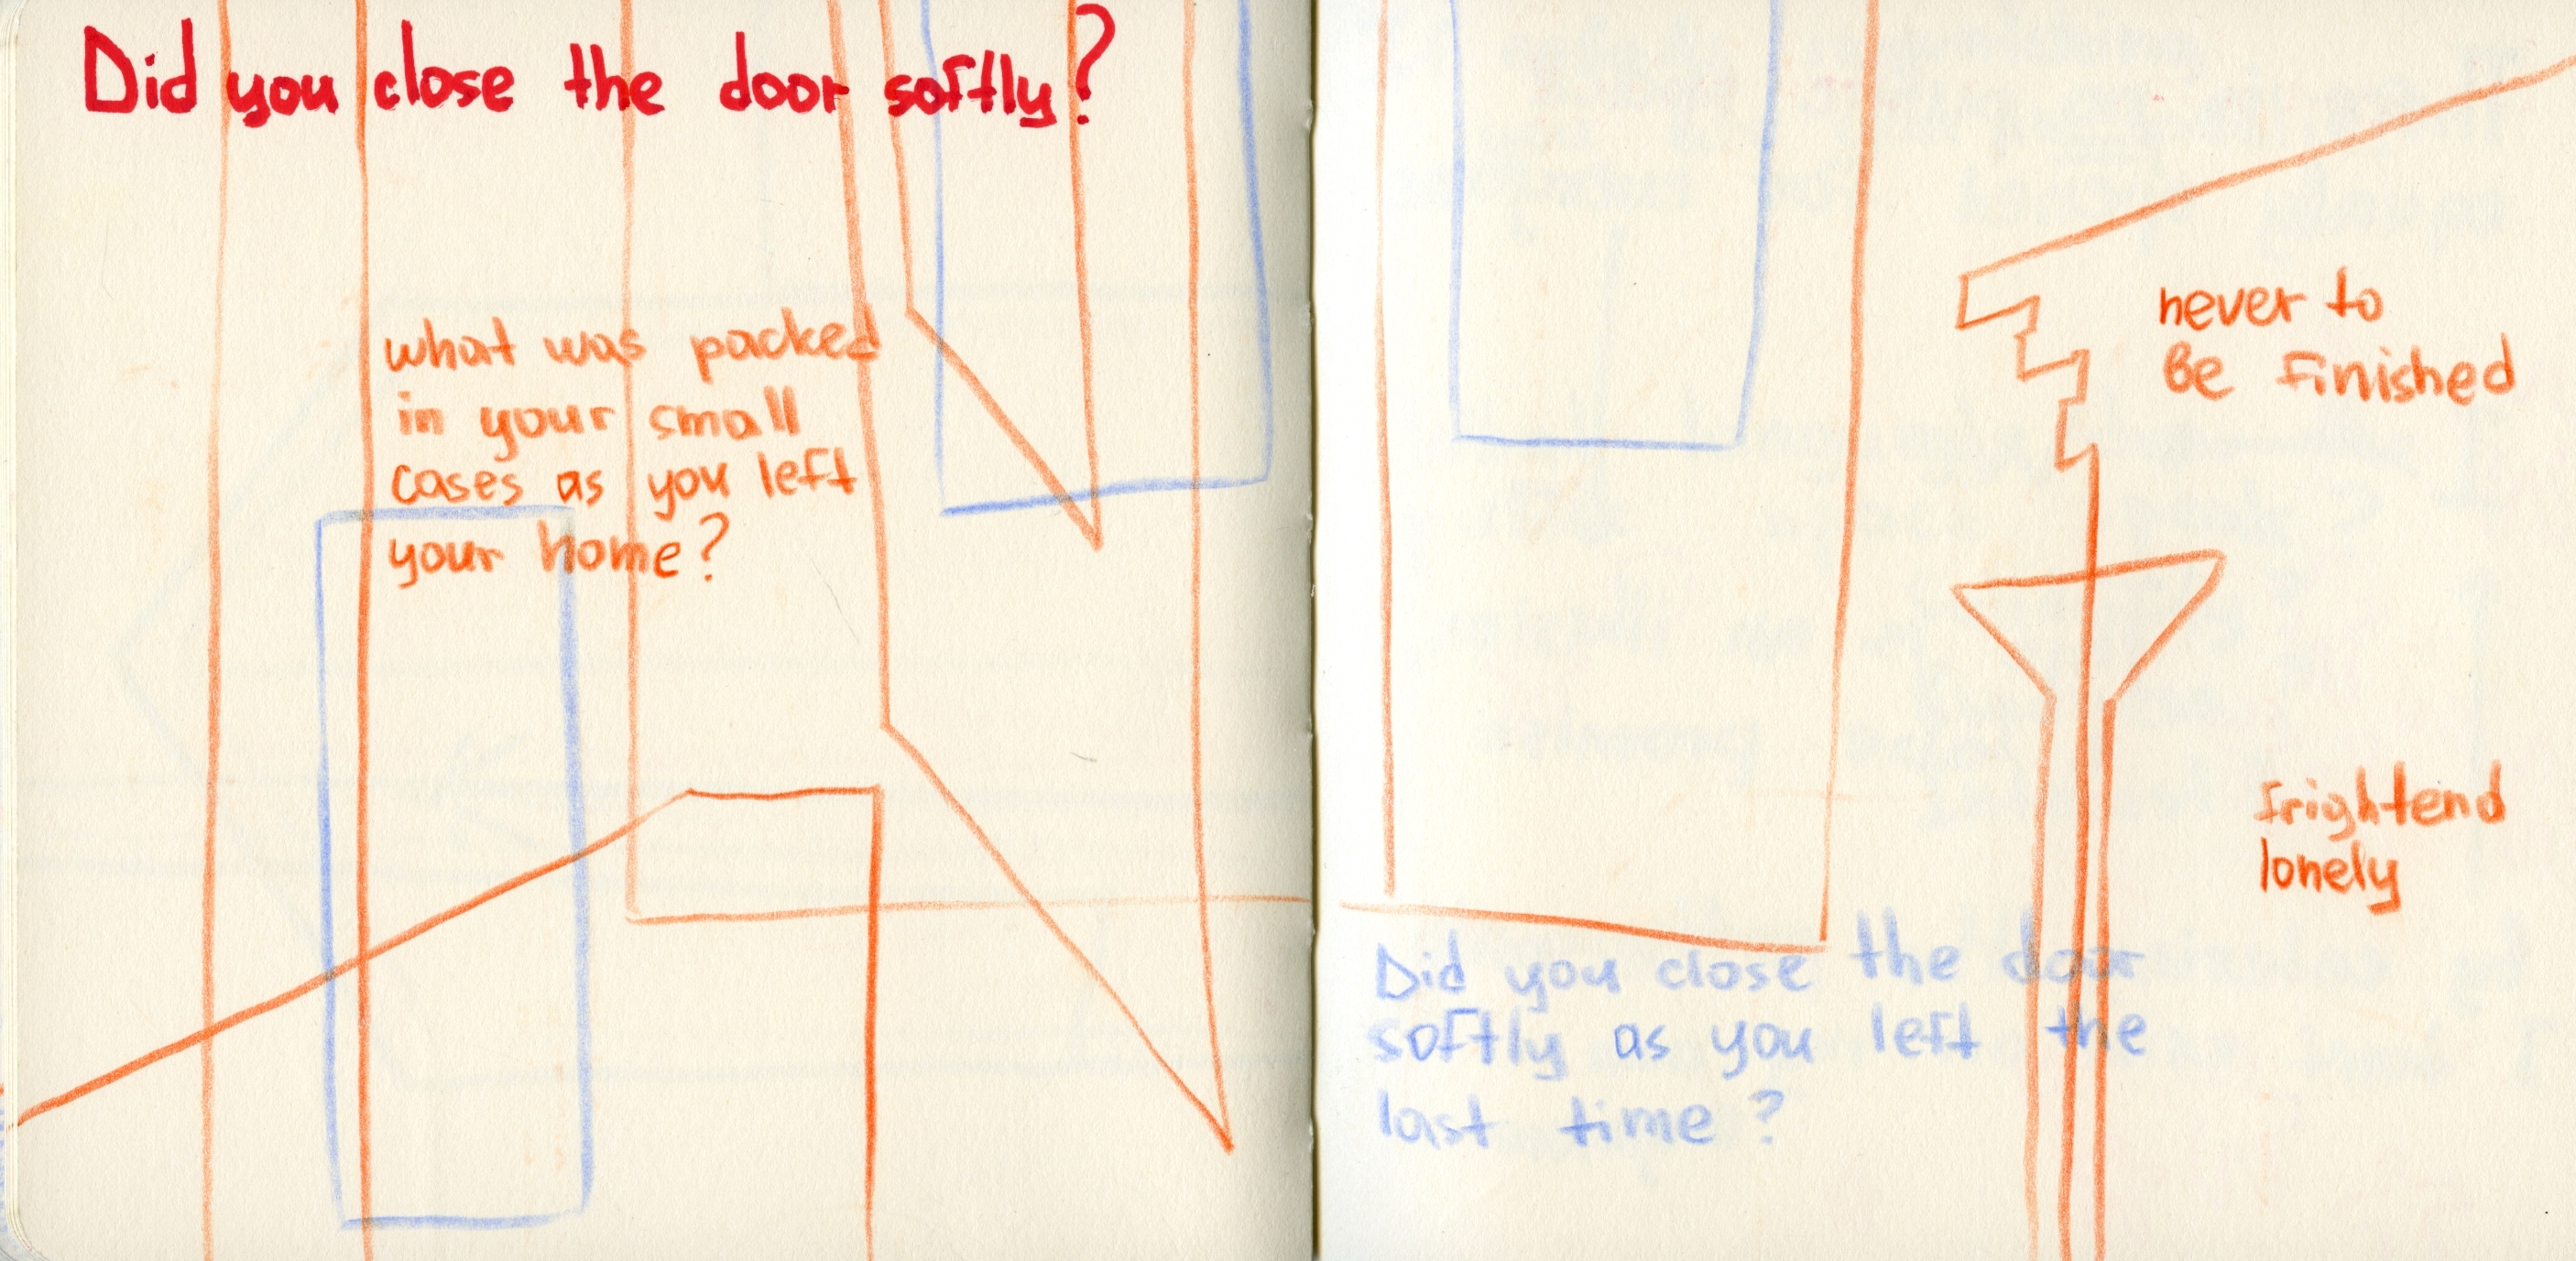 Did you close the door softly?
what was packed
in your small
cases as you left
your home?
never to
Be finished
frightend
lonely
Did you close the door
softly as you left the
last time?